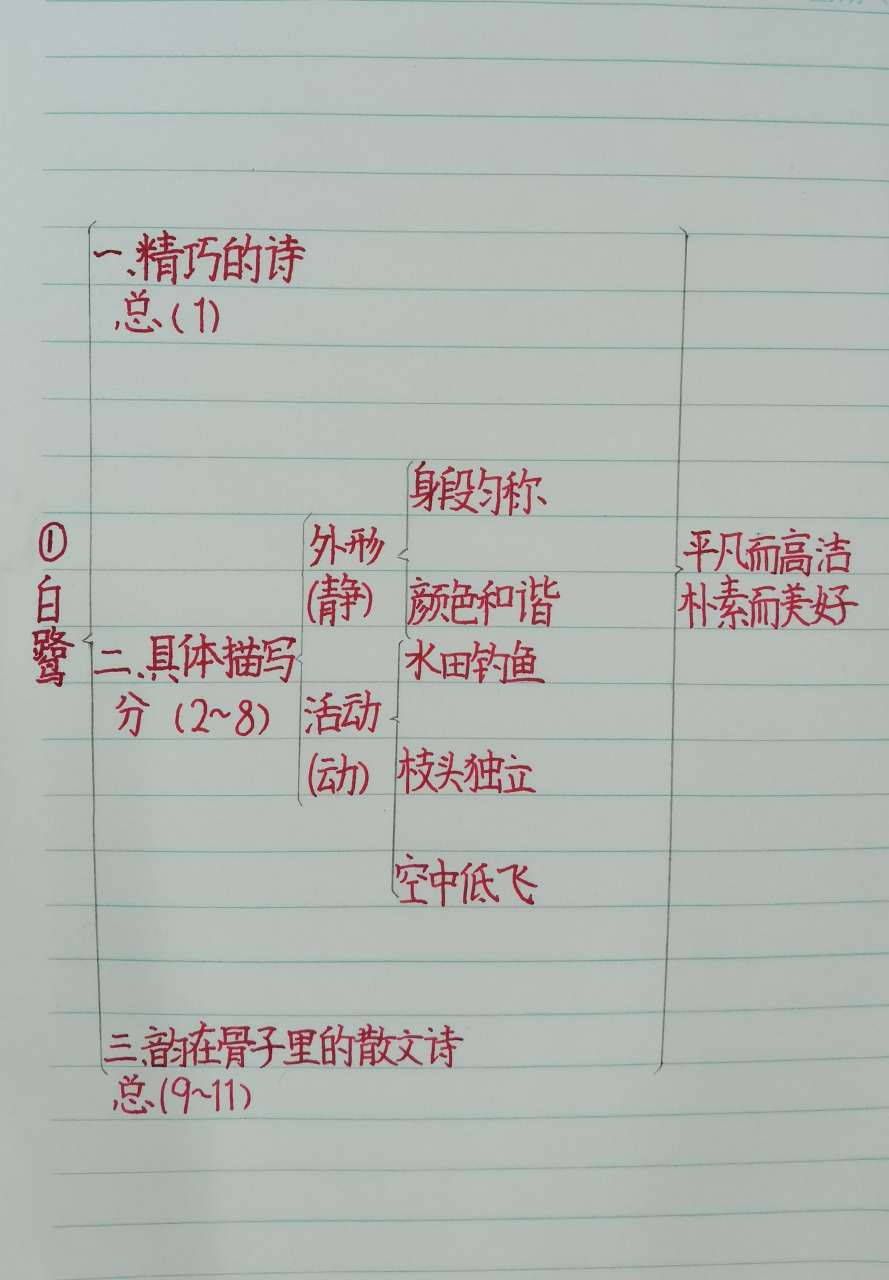 一、精巧的诗
总(1)
①白鹭
二、具体描写
分(2~8)
外形
(静)
身段匀称
颜色和谐
活动
(动)
水田钓鱼
枝头独立
空中低飞
三、韵在骨子里的散文诗
总(9~11)
平凡而高洁
朴素而美好